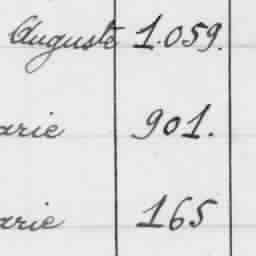 Auguste 1.059.
arie 901.
arie 165